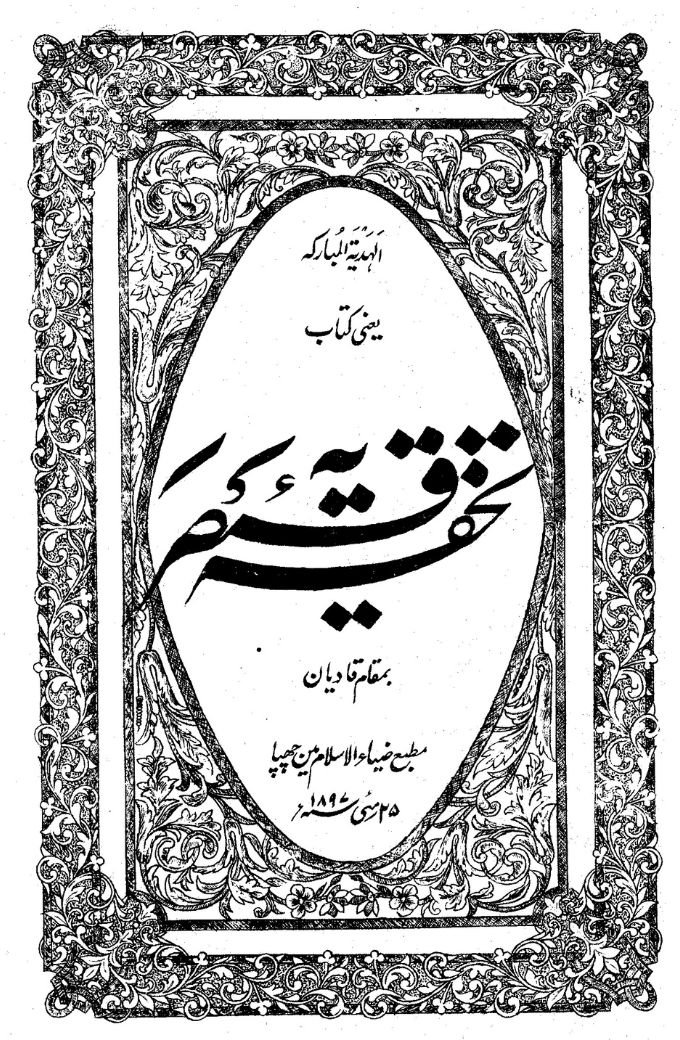 اَلْهَدْيَةُ الْمُبَارَكَه
یعنی کتاب
تحفہ قیصریہ
بمقام قادیان
مطبع ضیاء الاسلام میں چھپا
۲۵ مئی ۱۸۹۷ء